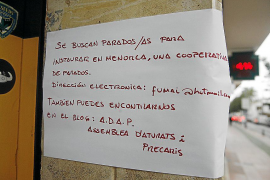 SE BUSCAN PARADOS/AS PARA
INSTAURAR EN MENORCA, UNA COOPERATIVA
DE PARADOS.
DIRECCIÓN ELECTRONICA: fumai@hotmail.
TAMBIEN PUEDES ENCONTRARNOS
EN EL BLOG: A.D.A.P.
ASSEMBLEA D'ATURATS i
PRECARIS